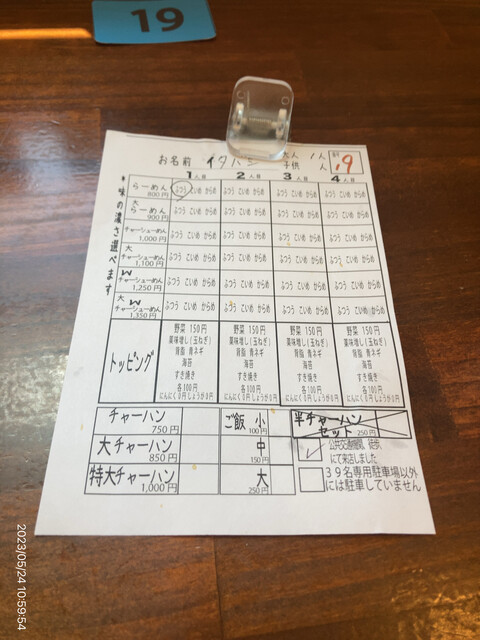 19
お名前 イタハシ 大人 1人
子供 人
19
1人目 2人目 3人目 4人目
*味の濃さ選べます
らーめん 800円 ふつう こいめ からめ ふつう こいめ からめ ふつう こいめ からめ ふつう こいめ からめ
大らーめん 900円 ふつう こいめ からめ ふつう こいめ からめ ふつう こいめ からめ ふつう こいめ からめ
チャーシューめん 1,000円 ふつう こいめ からめ ふつう こいめ からめ ふつう こいめ からめ ふつう こいめ からめ
大チャーシューめん 1,100円 ふつう こいめ からめ ふつう こいめ からめ ふつう こいめ からめ ふつう こいめ からめ
Wチャーシューめん 1,250円 ふつう こいめ からめ ふつう こいめ からめ ふつう こいめ からめ ふつう こいめ からめ
大Wチャーシューめん 1,350円 ふつう こいめ からめ ふつう こいめ からめ ふつう こいめ からめ ふつう こいめ からめ
トッピング
野菜 150円 野菜 150円 野菜 150円 野菜 150円
薬味増し(玉ねぎ) 薬味増し(玉ねぎ) 薬味増し(玉ねぎ) 薬味増し(玉ねぎ)
背脂 青ネギ 背脂 青ネギ 背脂 青ネギ 背脂 青ネギ
海苔 海苔 海苔 海苔
すき焼き すき焼き すき焼き すき焼き
各100円 各100円 各100円 各100円
にんにく0円しょうが0円 にんにく0円しょうが0円 にんにく0円しょうが0円 にんにく0円しょうが0円
チャーハン 750円 ご飯 小 100円 半チャーハンセット 250円
大チャーハン 850円 中 150円 公共交通機関、徒歩、
にて来店しました
特大チャーハン 1,000円 大 250円 39名専用駐車場以外
には駐車していません
2023/05/24 10:59:54